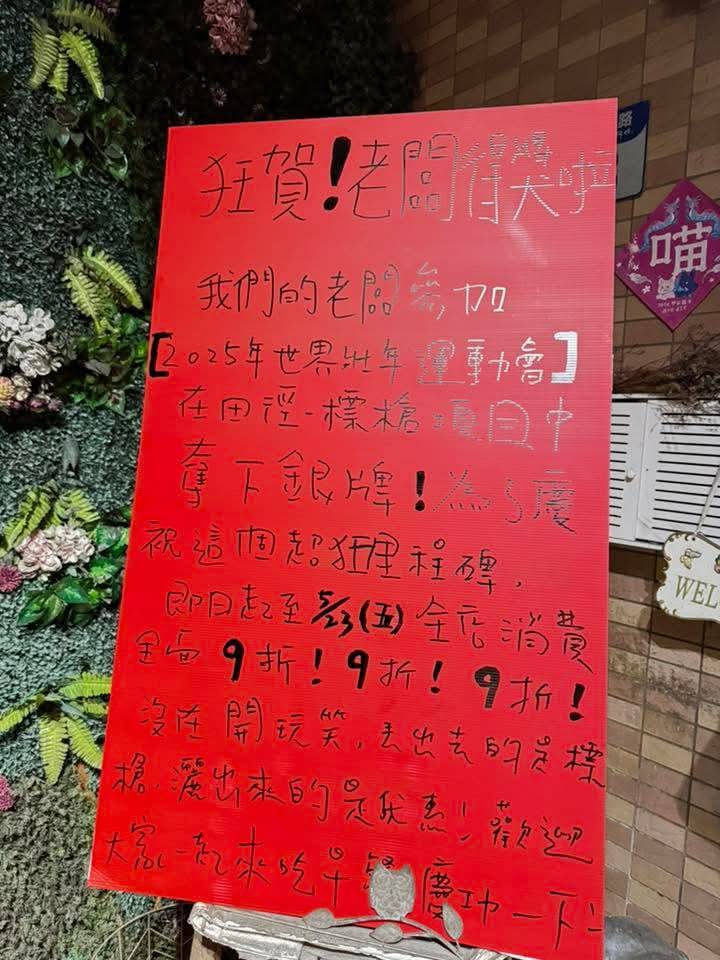 狂賀!老闆得獎啦
我們的老闆參加
【2025年世界壯年運動會】
在田徑-標槍項目中
奪下銀牌!為了慶
祝這個超狂里程碑,
即日起至5/23(五)全店消費
全面9折!9折!9折!
沒在開玩笑,丟出去的是標
槍,灑出來的是我素!歡迎
大家一起來吃早餐慶功一下~
路
喵
WEL